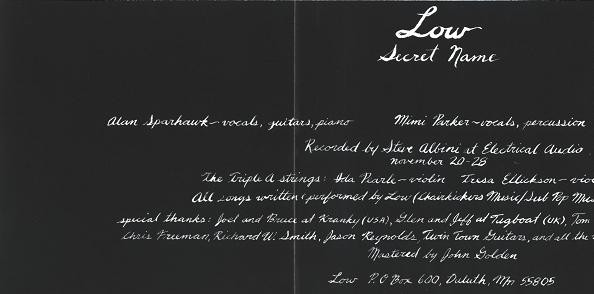 Low
Secret Name
Alan Sparhawk - vocals, guitars, piano Mimi Parker - vocals, percussion
Recorded by Steve Albini at Electrical Audio
november 20-28
The Triple A strings: Ida Pearle - violin Tresa Ellickson -
All songs written & performed by Low (Chairkickers Music/Sub Pop
special thanks: Joel and Bruce at Kranky (USA), Glen and Jeff at Tugboat (UK), Tom
Chris Freeman, Richard W. Smith, Jason Reynolds, Twin Town Guitars, and all the
Mastered by John Golden
Low P.O Box 600, Duluth, Mn 55805